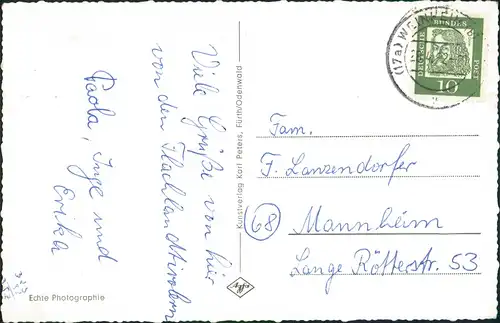 Viele Grüße von hier
von den Flachlandtirolern
Paola, Inge und
Erika
Echte Photographie
Kunstverlag Karl Peters, Fürth/Odenwald
DEUTSCHE
BUNDES
POST
10
(17a) WEINHEIM
Fam.
F. Lanzendorfer
(68) Mannheim
Lange Rötterstr. 53